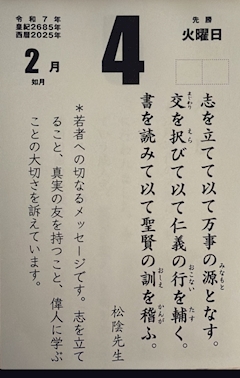 令和7年
皇紀2685年
西暦2025年
2月
如月
4
先勝
火曜日
志を立てて以て万事の源となす。
みなもと
交を択びて以て仁義の行を輔く。
まじわり えら おこない たす
書を読みて以て聖賢の訓を稽ふ。
おしえ かんが
松陰先生
＊若者への切なるメッセージです。志を立て
ること、真実の友を持つこと、偉人に学ぶ
ことの大切さを訴えています。